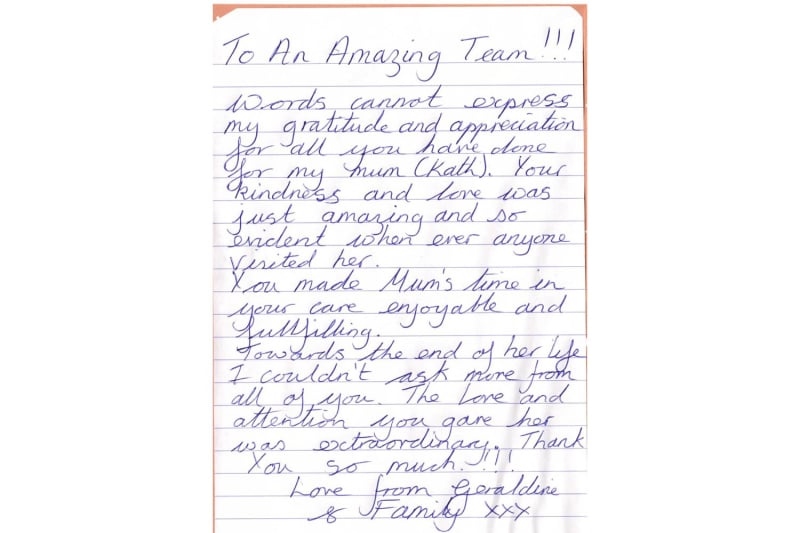 To An Amazing Team!!!
Words cannot express
my gratitude and appreciation
for all you have done
for my mum (Kath). Your
kindness and love was
just amazing and so
evident when ever anyone
visited her.
You made Mum's time in
your care enjoyable and
fullfilling.
Towards the end of her life
I couldn't ask more from
all of you. The Love and
attention you gave her
was extraordinary. Thank
You so much.!!!
Love from Geraldine
& Family xxx